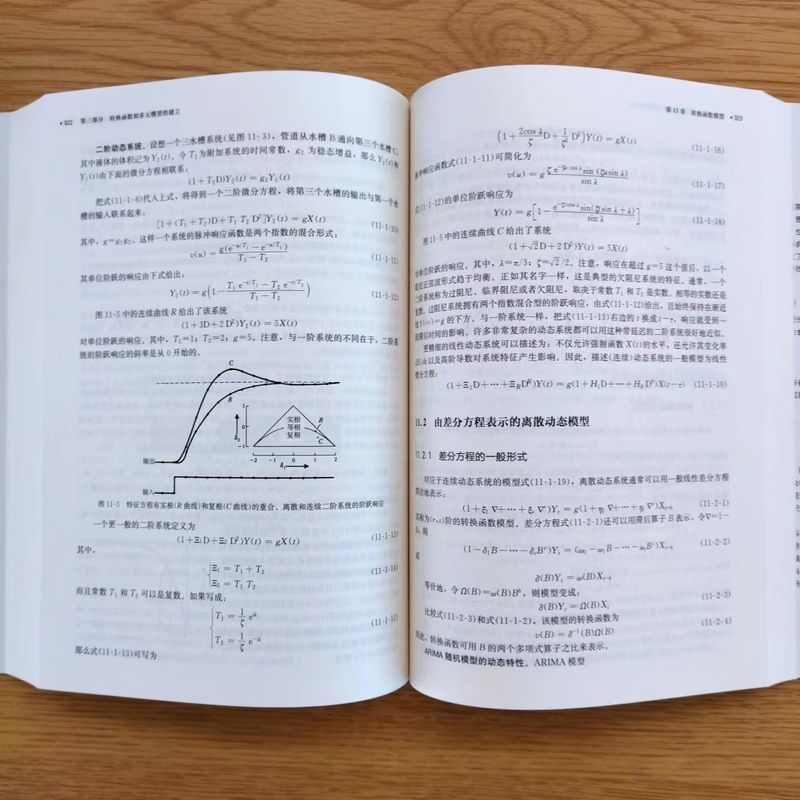 • 322 第三部分 转换函数和多元模型的建立
二阶动态系统。设想一个三水槽系统(见图 11-3)，管道从水槽 B 通向第三个水槽 C，
其中液体的体积记为 Y₂(t)。令 T₂ 为附加系统的时间常数，g₂ 为稳态增益，那么 Y₂(t)和
Y₁(t)由下面的微分方程相联系：
(1+T₂D)Y₂(t) = g₂Y₁(t)
把式(11-1-6)代入上式，将得到一个二阶微分方程，将第三个水槽的输出与第一个水
槽的输入联系起来：
[1+(T₁+T₂)D+T₁T₂D²]Y₂(t) = gX(t) (11-1-10)
其中，g=g₁g₂。这样一个系统的脉冲响应函数是两个指数的混合形式：
v(u) = g(e^{-u/T₁} − e^{-u/T₂}) / (T₁ − T₂) (11-1-11)
其单位阶跃的响应由下式给出：
Y₂(t) = g(1 − (T₁ e^{-t/T₁} − T₂ e^{-t/T₂}) / (T₁ − T₂)) (11-1-12)
图 11-5 中的连续曲线 R 给出了该系统
(1+3D+2D²)Y₂(t) = 5X(t)
对单位阶跃的响应。其中，T₁=1；T₂=2；g=5。注意，与一阶系统的不同在于，二阶系
统的阶跃响应的斜率是从 0 开始的。
C
R
1
0
−1
δ₂
实根
等根
复根
R
C
−2 −1 0 1 2
δ₁
输出
输入
图 11-5 特征方程有实根(R 曲线)和复根(C 曲线)的重合、离散和连续二阶系统的阶跃响应
一个更一般的二阶系统定义为
(1+Ξ₁D+Ξ₂D²)Y(t) = gX(t) (11-1-13)
其中，
Ξ₁ = T₁ + T₂
Ξ₂ = T₁ T₂ (11-1-14)
而且常数 T₁ 和 T₂ 可以是复数。如果写成：
T₁ = (1/ζ) e^{iλ}
T₂ = (1/ζ) e^{-iλ} (11-1-15)
那么式(11-1-13)可写为
第 11 章 转换函数模型 • 323
(1 + (2cos λ/ζ) D + (1/ζ²) D²)Y(t) = gX(t) (11-1-16)
脉冲响应函数式(11-1-11)可简化为
(11-1-17)
式(11-1-12)的单位阶跃响应为
(11-1-18)
图 11-5 中的连续曲线 C 给出了系统
(1+√2D+2D²)Y(t) = 5X(t)
对单位阶跃的响应。其中，λ=π/3；ζ=√2/2。注意，响应在超过 g=5 这个值后，以一个
阻尼正弦波形式趋于均衡。正如其名字一样，这是典型的欠阻尼系统的特征。通常，一个
二阶系统称为过阻尼、临界阻尼或者欠阻尼，取决于常数 T₁ 和 T₂ 是实数、相等的实数还是
复数。过阻尼系统拥有两个指数混合型的阶跃响应，由式(11-1-12)给出，且始终保持在渐近
线 Y(∞)=g 的下方。与一阶系统一样，把式(11-1-13)右边的 t 换成 t−τ，响应就受到一
期滞后时间的影响。许多非常复杂的动态系统都可以用这种带延迟的二阶系统很好地近似。
更精细的线性动态系统可以描述为：不仅允许强制函数 X(t)的水平，还允许其变化率
dX/dt 以及高阶导数对系统特征产生影响。因此，描述(连续)动态系统的一般模型为线性
微分方程：
(1+Ξ₁D+⋯+Ξ_R D^R)Y(t) = g(1+H₁D+⋯+H_S D^S)X(t−τ) (11-1-19)
11.2 由差分方程表示的离散动态模型
11.2.1 差分方程的一般形式
对应于连续动态系统的模型式(11-1-19)，离散动态系统通常可以用一般线性差分方程
简洁地表示：
(1+ξ₁∇+⋯+ξᵣ∇ʳ)Yₜ = g(1+η₁∇+⋯+ηₛ∇ˢ)Xₜ₋b (11-2-1)
其称为(r,s)阶的转换函数模型。差分方程式(11-2-1)还可以用滞后算子 B 表示，令∇=1−
B，则
(1−δ₁B−⋯−δᵣBʳ)Yₜ = (ω₀−ω₁B−⋯−ωₛBˢ)Xₜ₋b (11-2-2)
或
δ(B)Yₜ = ω(B)Xₜ₋b
等价地，令 Ω(B)=ω(B)Bᵇ，则模型变成：
δ(B)Yₜ = Ω(B)Xₜ (11-2-3)
比较式(11-2-3)和式(11-1-2)，该模型的转换函数为
v(B) = δ⁻¹(B)Ω(B) (11-2-4)
因此，转换函数可用 B 的两个多项式算子之比来表示。
ARIMA 随机模型的动态特性。ARIMA 模型